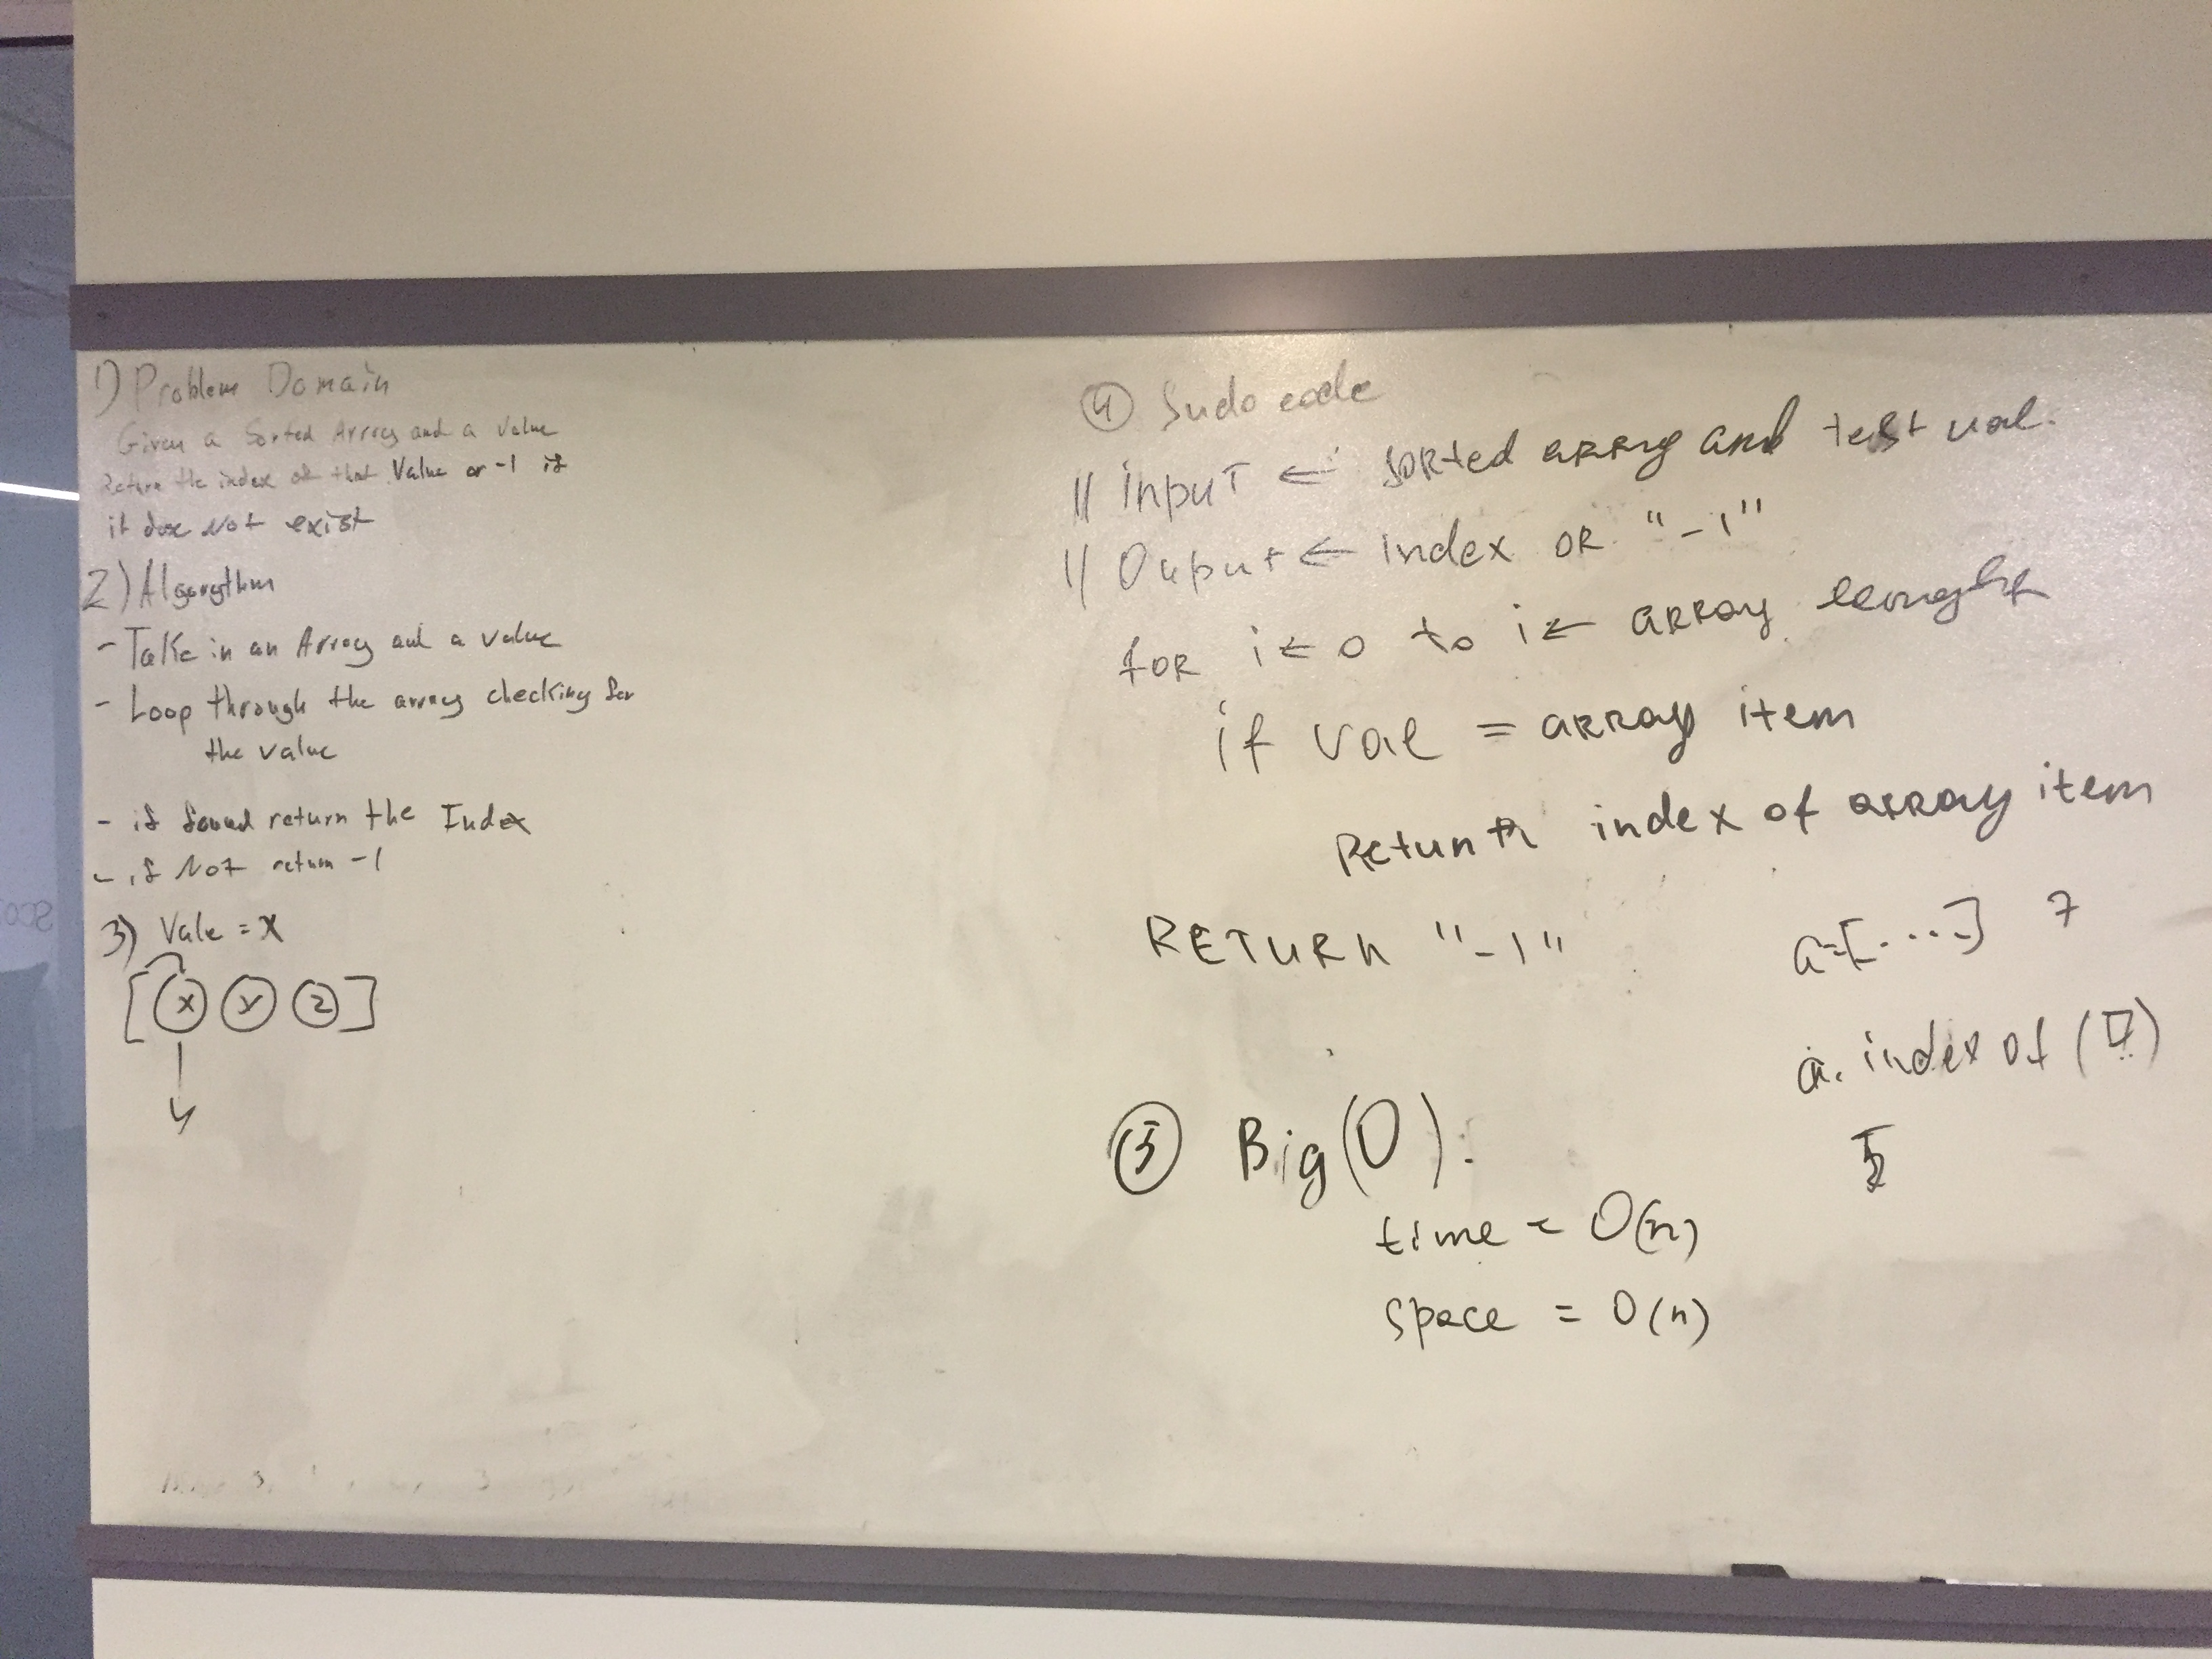 1) Problem Domain
Given a Sorted Array and a value
Return the index of that Value or -1 if
it doe Not exist
2) Algorythm
- Take in an Array and a value
- Loop through the array checking for
the value
- if found return the Index
- if Not return -1
3) Vale = X
[ X Y Z ]
④ Sudo code
// input ← sorted array and test val.
// Ouput ← index OR "-1"
for i ← 0 to i ← array lenght
if val = array item
Return index of array item
RETURN "-1"
a=[....] 7
a. index of (7)
5
⑤ Big(O):
time = O(n)
space = O(n)